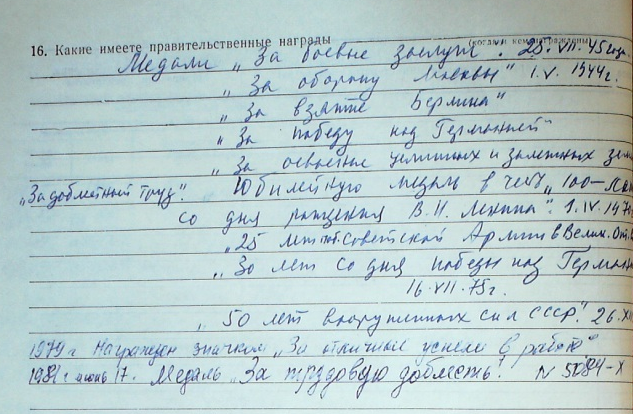 16. Какие имеете правительственные награды
(когда и кем награждены)
Медали „За боевые заслуги". 25. VII. 45 года
„За оборону Москвы" 1.V. 1944г.
„За взятие Берлина"
„За победу над Германией"
„За освоение целинных и залежных
„За доблестный труд". Юбилейную медаль в честь „100-
со дня рождения В.И. Ленина". 1.IV.
„25 лет Советской Армии в Велик. От.
„30 лет со дня победы над
16.VII.75г.
„50 лет вооруженных сил СССР". 26.
1979 г. Награжден значком „За отличные успехи в работе"
июнь 17. Медаль „За трудовую доблесть".